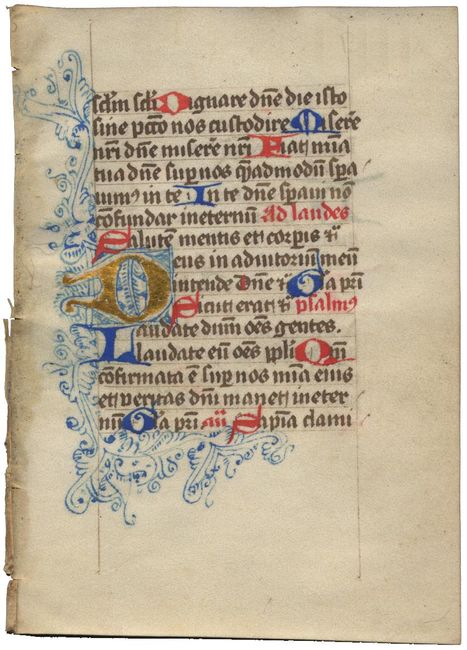 sclm̄ sclī Dignare dn̄e die isto
sine pctō nos custodire Misere
nr̄i dn̄e misere nr̄i Fiat mīa
tua dn̄e sup nos q̄admodū spa
uimꝰ in te In te dn̄e spaui nō
cōfundar ineternū Ad laudes
Salutē mentis et corpis ꝛc̄
Deus in adiutorium meū
intende Dn̄e ꝛc̄ Gl̄a pr̄i
Sicut erat ꝛc̄ psalmꝰ
Laudate dnm̄ oēs gentes.
laudate eū oēs ppl̄i Qm̄
cōfirmata ē sup nos mīa eius
et veritas dn̄i manet in eter
nū Gl̄a pr̄i an̄ Sapīa clami